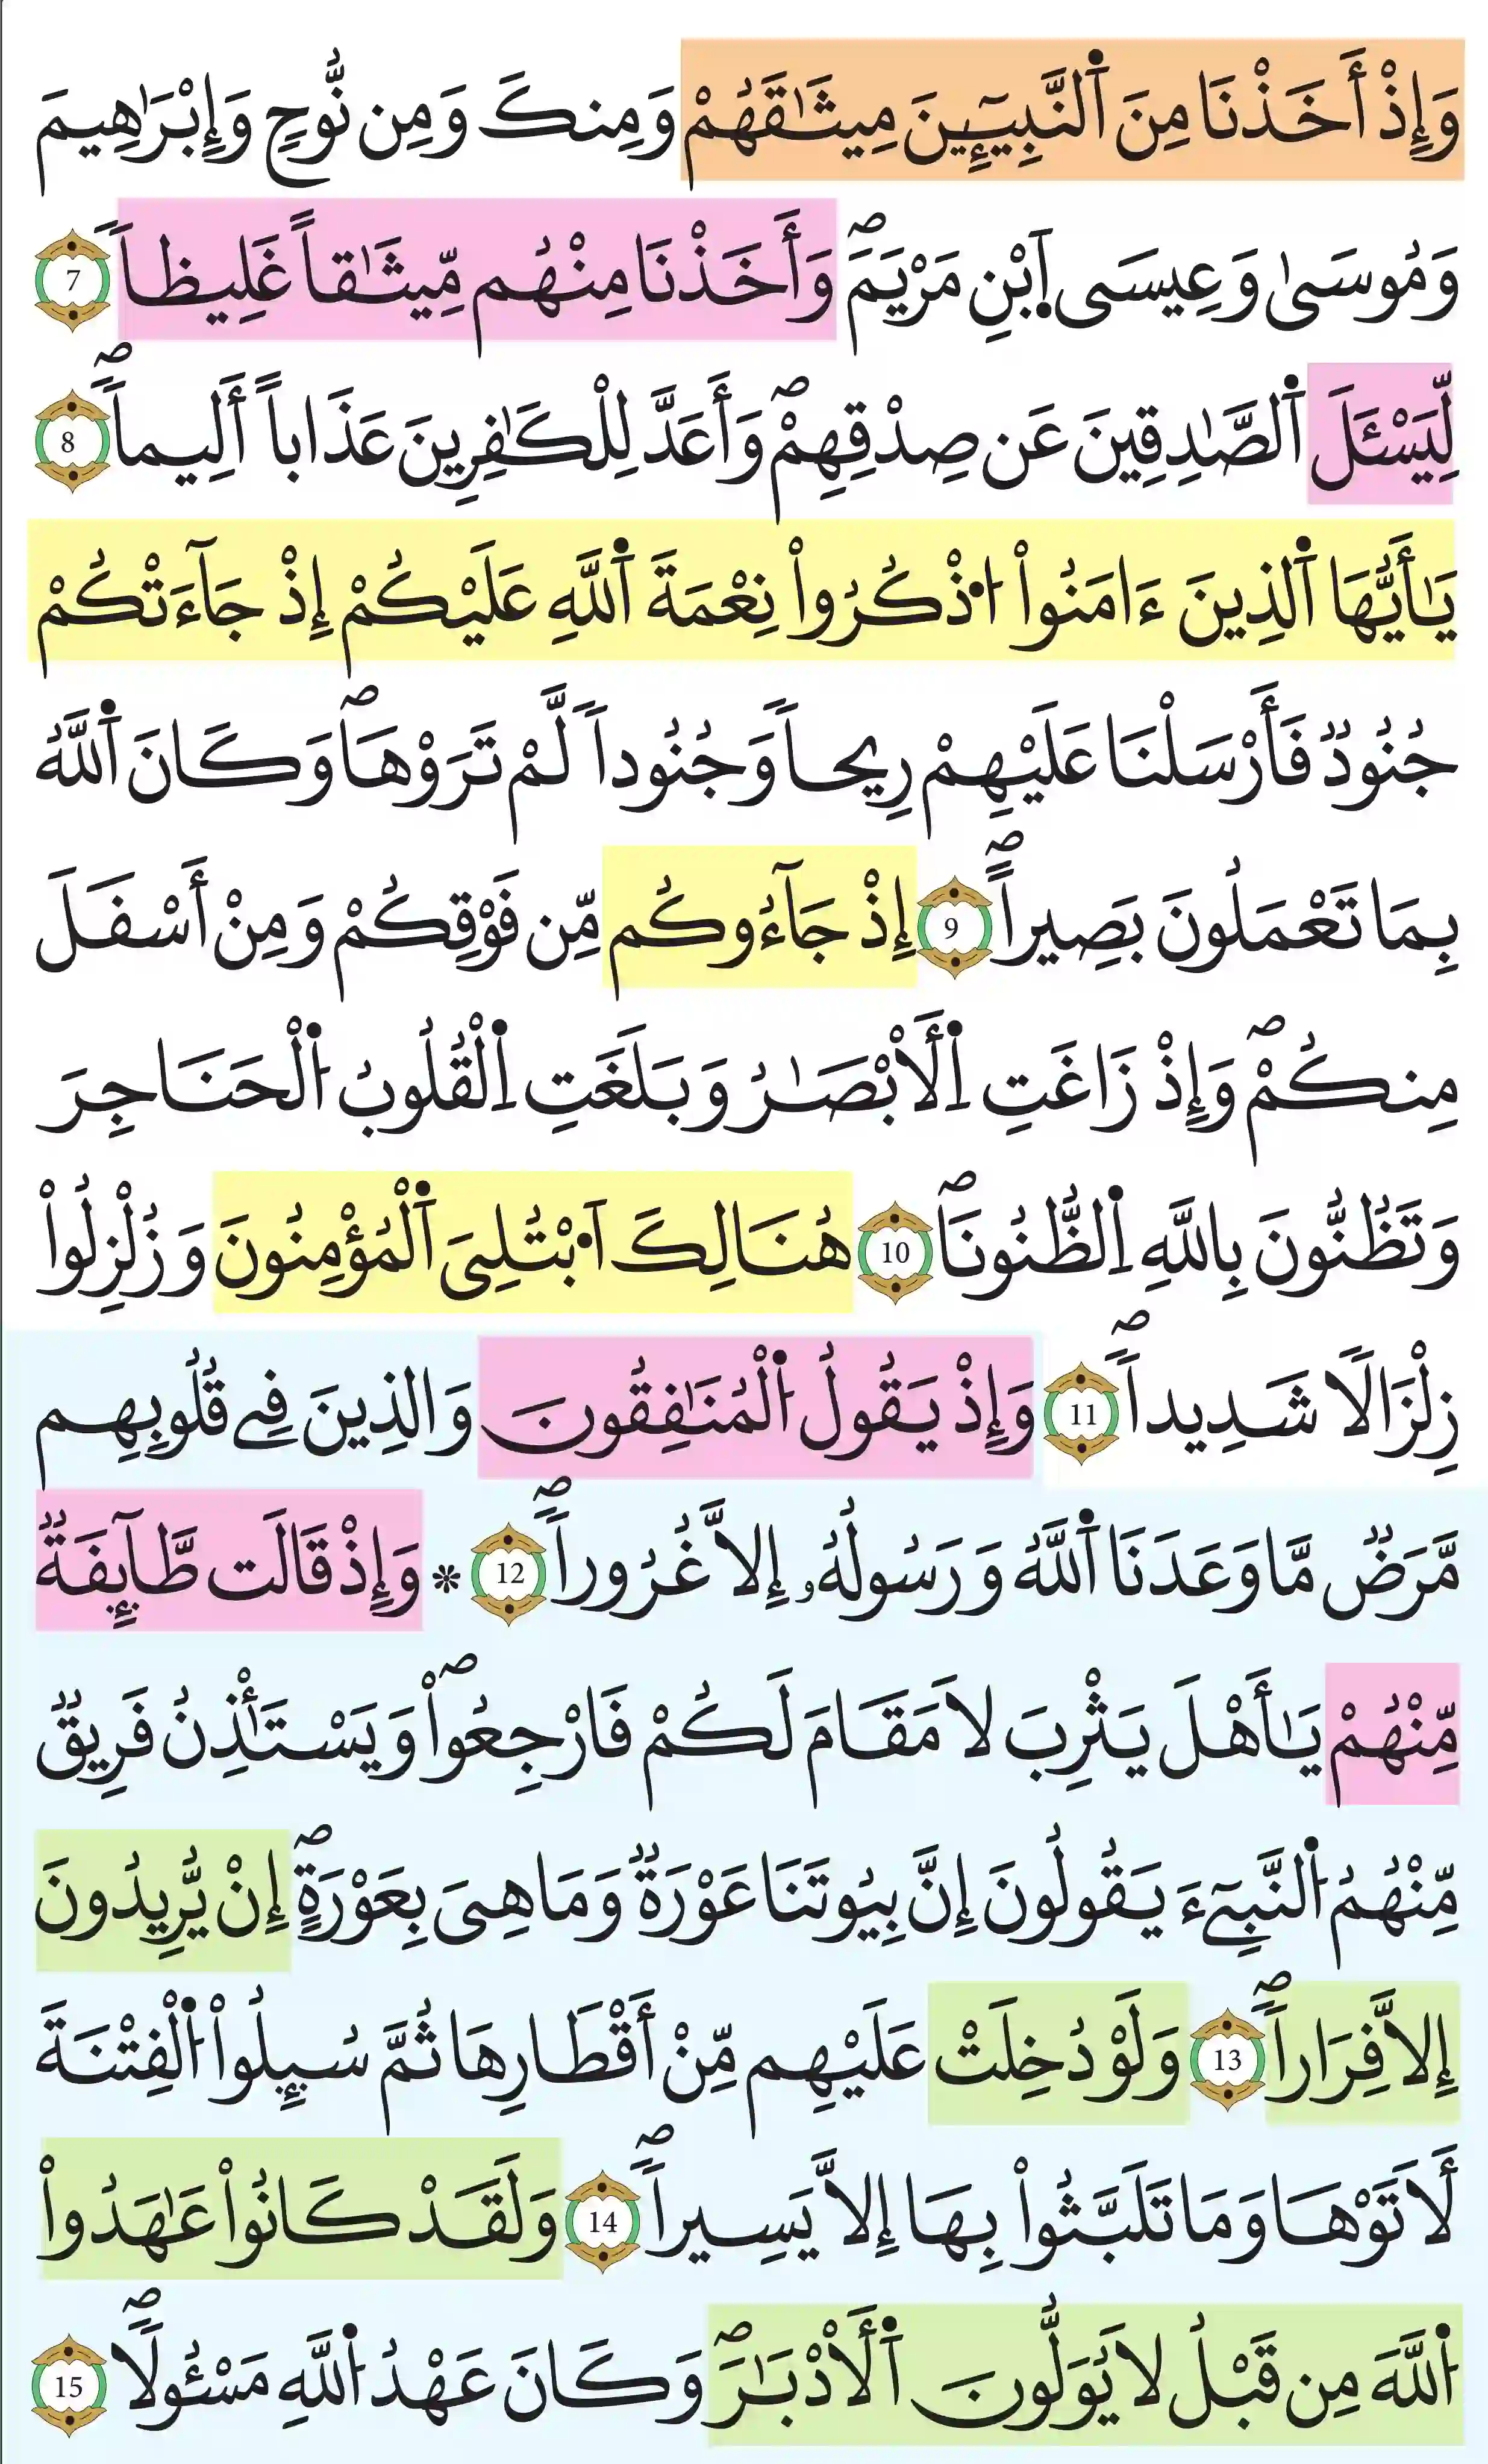 وَإِذْ أَخَذْنَا مِنَ ٱلنَّبِيٓـِٕينَ مِيثَٰقَهُمْ وَمِنكَ وَمِن نُّوحٍ وَإِبْرَٰهِيمَ
وَمُوسَىٰ وَعِيسَى ٱبْنِ مَرْيَمَۖ وَأَخَذْنَا مِنْهُم مِّيثَٰقاً غَلِيظاً 7
لِّيَسْـَٔلَ ٱلصَّٰدِقِينَ عَن صِدْقِهِمْۖ وَأَعَدَّ لِلْكَٰفِرِينَ عَذَاباً أَلِيماًۖ 8
يَٰأَيُّهَا ٱلذِينَ ءَامَنُواْ ٱذْكُرُواْ نِعْمَةَ ٱللَّهِ عَلَيْكُمْ إِذْ جَآءَتْكُمْ
جُنُودٌ فَأَرْسَلْنَا عَلَيْهِمْ رِيحاً وَجُنُوداً لَّمْ تَرَوْهَاۖ وَكَانَ ٱللَّهُ
بِمَا تَعْمَلُونَ بَصِيراًۖ 9 إِذْ جَآءُوكُم مِّن فَوْقِكُمْ وَمِنْ أَسْفَلَ
مِنكُمْۖ وَإِذْ زَاغَتِ ٱلَأبْصَٰرُ وَبَلَغَتِ ٱلْقُلُوبُ ٱلْحَنَاجِرَ
وَتَظُنُّونَ بِاللَّهِ ٱلظُّنُونَاۖ 10 هُنَالِكَ ٱبْتُلِىَ ٱلْمُؤْمِنُونَ وَزُلْزِلُواْ
زِلْزَالًا شَدِيداًۖ 11 وَإِذْ يَقُولُ ٱلْمُنَٰفِقُونَ وَالذِينَ فِے قُلُوبِهِم
مَّرَضٌ مَّا وَعَدَنَا ٱللَّهُ وَرَسُولُهُۥ إِلاَّ غُرُوراًۖ 12 * وَإِذْ قَالَت طَّآئِفَةٌ
مِّنْهُمْ يَٰأَهْلَ يَثْرِبَ لاَ مَقَامَ لَكُمْ فَارْجِعُواْۖ وَيَسْتَـْٔذِنُ فَرِيقٌ
مِّنْهُمُ ٱلنَّبِےٓءَ يَقُولُونَ إِنَّ بِيُوتَنَا عَوْرَةٌ وَمَا هِىَ بِعَوْرَةٍۖ إِنْ يُّرِيدُونَ
إِلاَّ فِرَاراًۖ 13 وَلَوْ دُخِلَتْ عَلَيْهِم مِّنْ أَقْطَارِهَا ثُمَّ سُئِلُواْ ٱلْفِتْنَةَ
لَأَتَوْهَا وَمَا تَلَبَّثُواْ بِهَا إِلاَّ يَسِيراًۖ 14 وَلَقَدْ كَانُواْ عَٰهَدُواْ
ٱللَّهَ مِن قَبْلُ لاَ يُوَلُّونَ ٱلَأدْبَٰرَۖ وَكَانَ عَهْدُ ٱللَّهِ مَسْـُٔولًاۖ 15